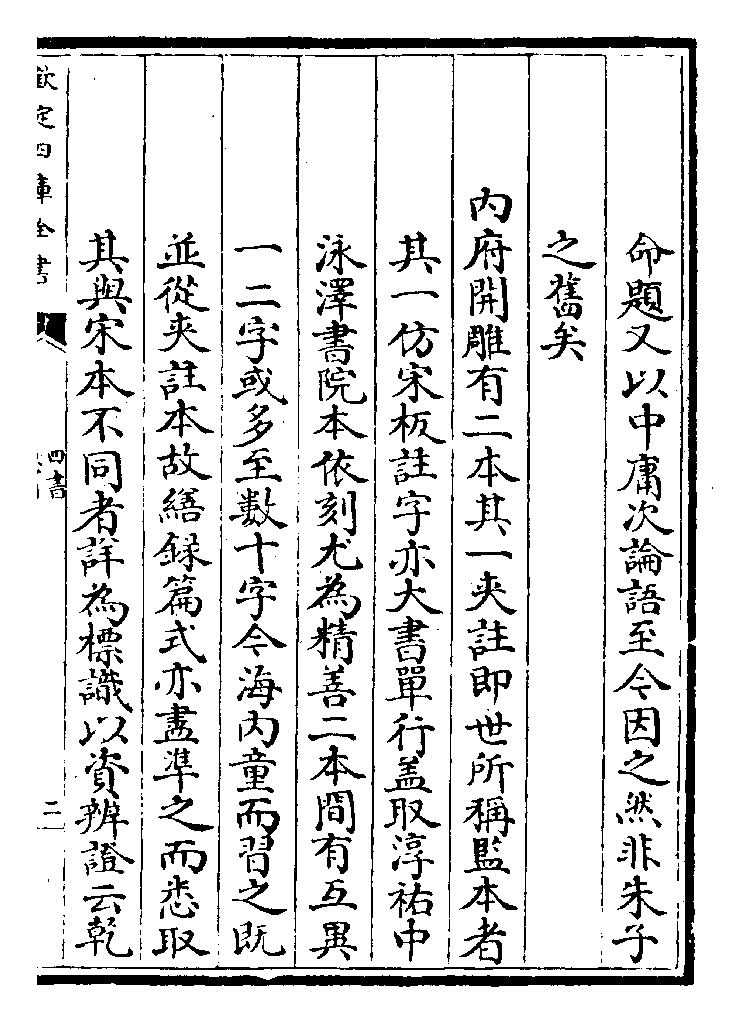 命題又以中庸次論語至今因之然非朱子
之舊矣
内府開雕有二本其一夾註即世所稱監本者
其一仿宋板註字亦大書單行盖取淳祐中
泳澤書院本依刻尤為精善二本間有互異
一二字或多至數十字今海内童而習之既
並從夾註本故繕録篇式亦盡準之而悉取
其與宋本不同者詳為標識以資辨證云乾
欽定四庫全書
四書
二